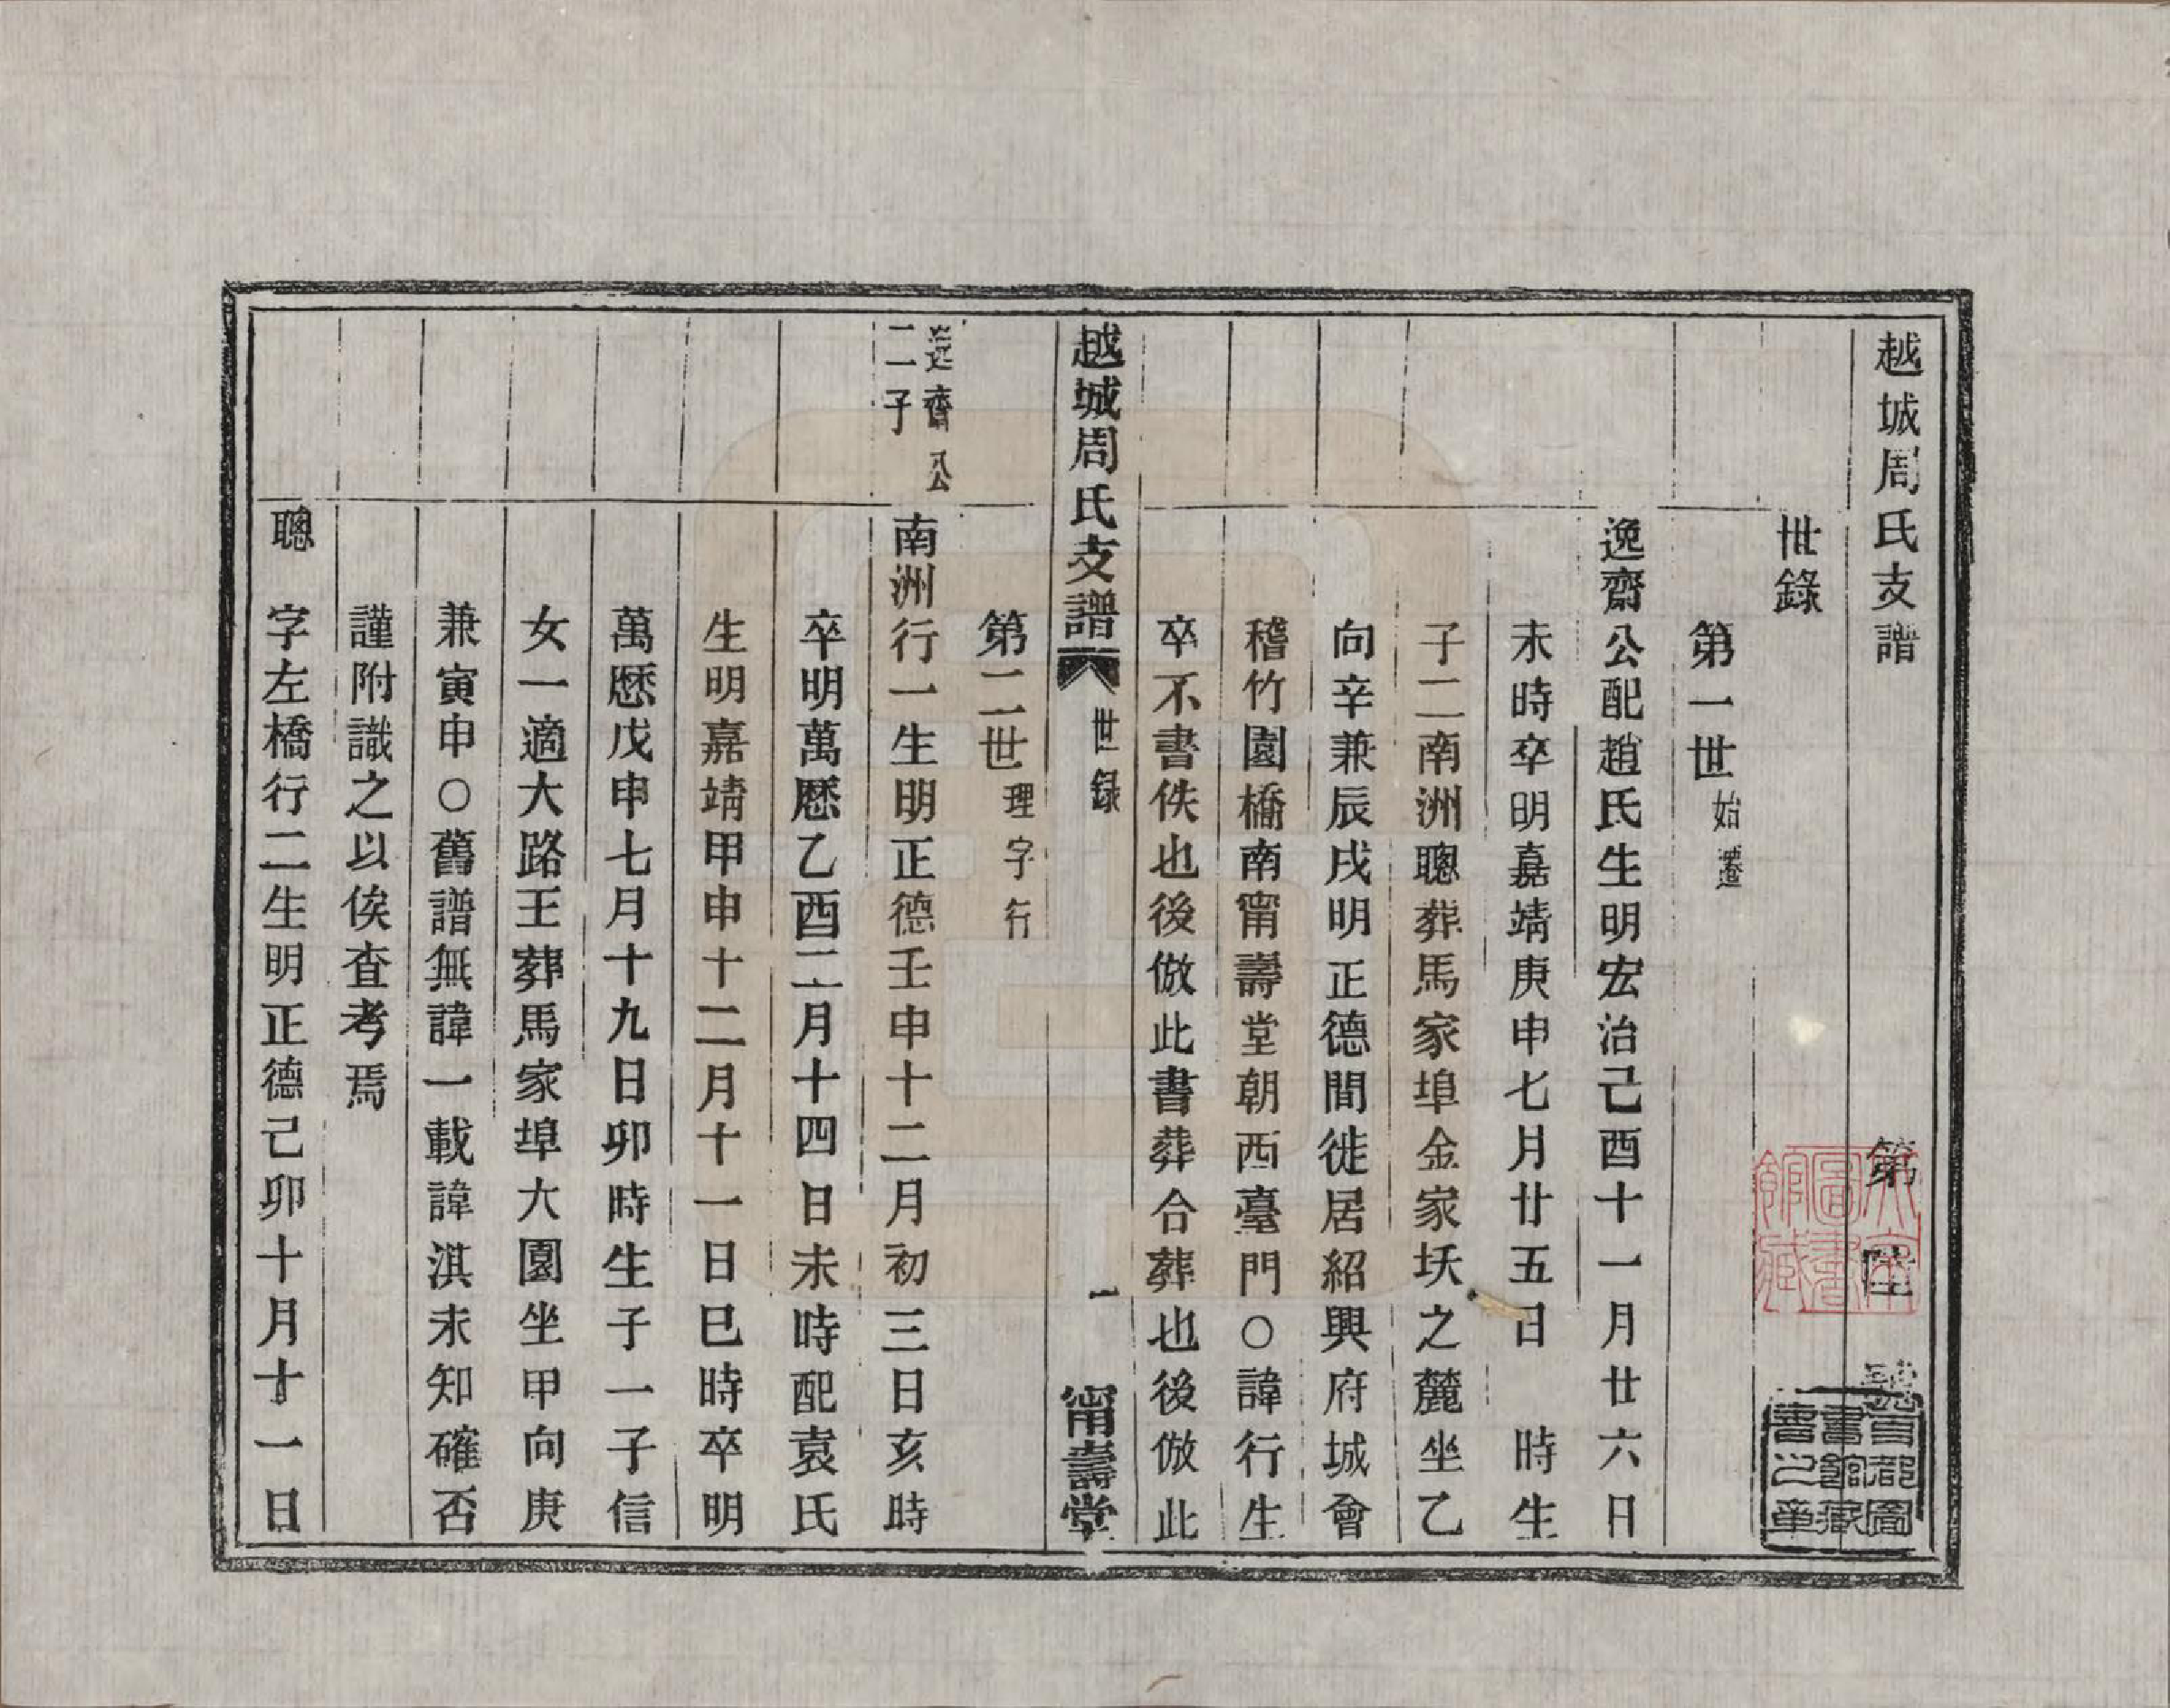 越城周氏支譜　第陸號
世錄
第一世始遷
逸齋公配趙氏生明宏治己酉十一月廿六日
未時卒明嘉靖庚申七月廿五日　時生
子二南洲聰葬馬家埠金家坂之麓坐乙
向辛兼辰戌明正德間徙居紹興府城會
稽竹園橋南甯壽堂朝西臺門○諱行生
卒不書佚也後倣此書葬合葬也後倣此
越城周氏支譜　世録　一　甯壽堂
第二世理字行
逸齋公
二子
南洲行一生明正德壬申十二月初三日亥時
卒明萬厯乙酉二月十四日未時配袁氏
生明嘉靖甲申十二月十一日巳時卒明
萬厯戊申七月十九日卯時生子一子信
女一適大路王葬馬家埠大園坐甲向庚
兼寅申○舊譜無諱一載諱淇未知確否
謹附識之以俟查考焉
聰　字左橋行二生明正德己卯十月十一日